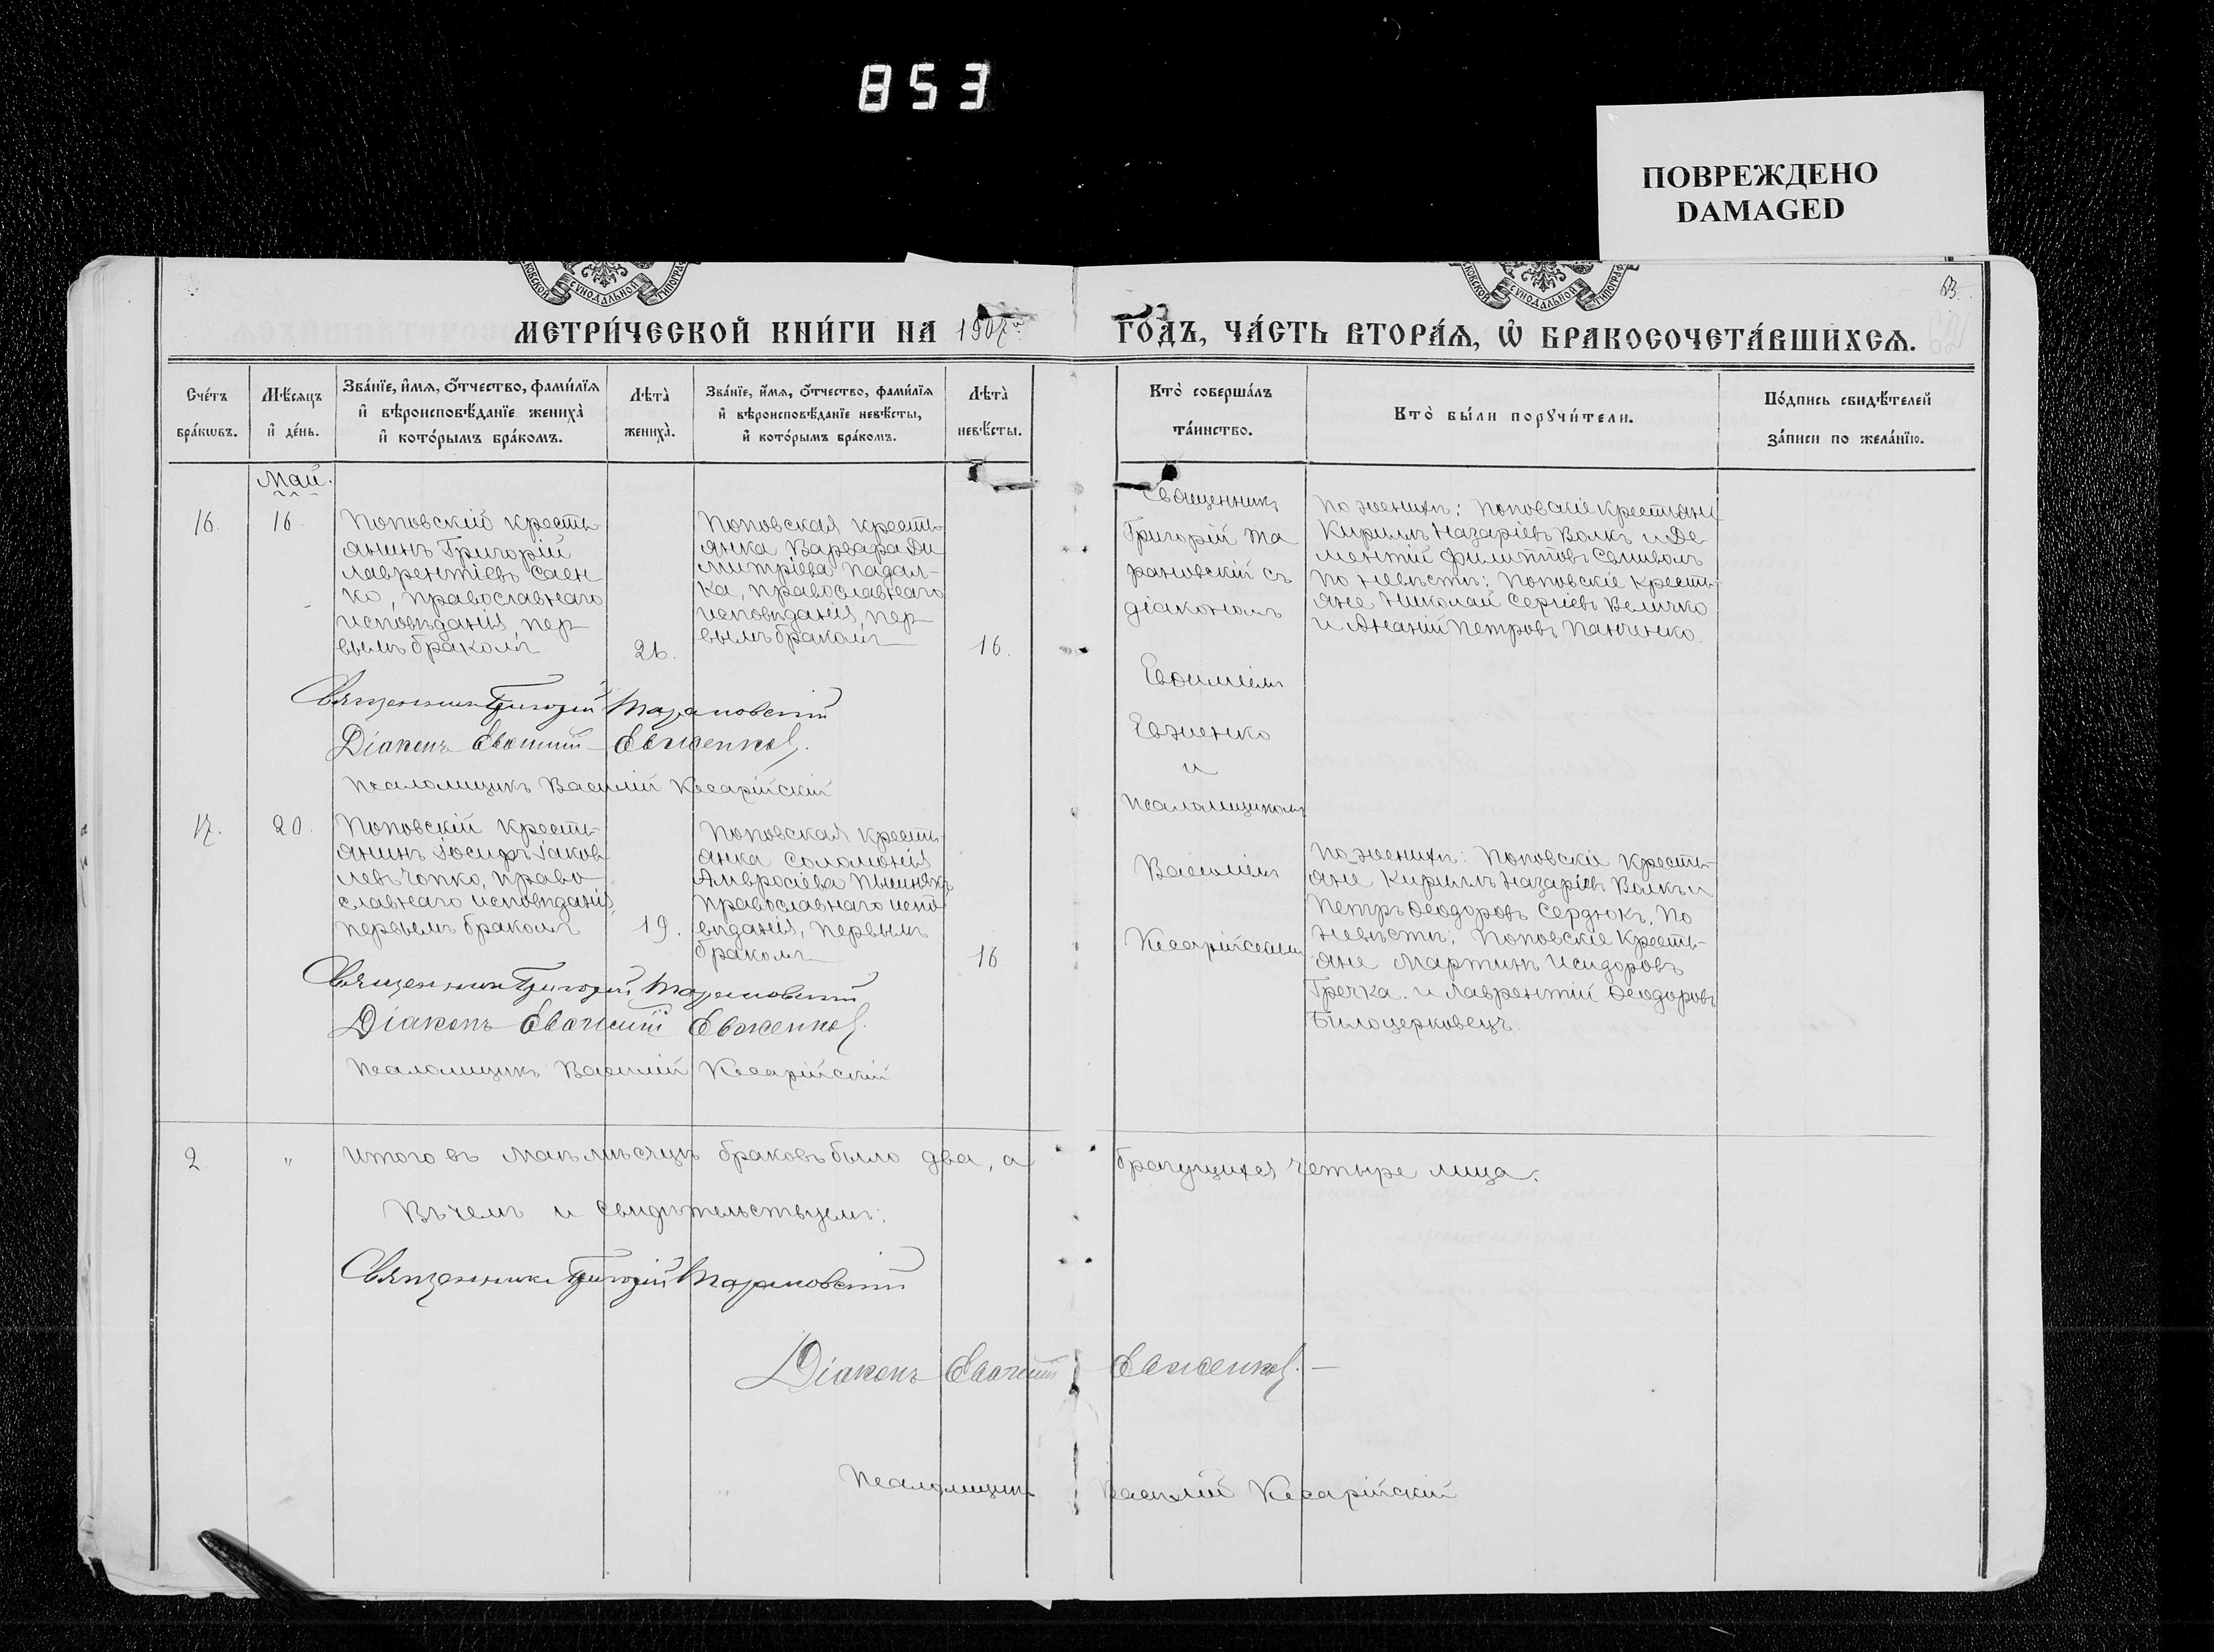 853
ПОВРЕЖДЕНО
DAMAGED
МЕТРИ́ЧЕСКОЙ КНИ́ГИ НА 1907 ГО́ДЪ, ЧА́СТЬ ВТОРА́Я, Ѡ БРАКОСОЧЕТА́ВШИХСЯ.
Сче́тъ бра́кѡвъ.
Мѣ́сяцъ и де́нь.
Зва́нїе, и́мя, ѻ́тчество, фами́лїя
и вѣроисповѣ́данїе жениха̀
и кото́рымъ бра́комъ.
Лѣта̀ жениха̀.
Зва́нїе, и́мя, ѻ́тчество, фами́лїя
и вѣроисповѣ́данїе невѣ́сты,
и кото́рымъ бра́комъ.
Лѣта̀ невѣ́сты.
Кто̀ соверша́лъ
та́инство.
Кто̀ бы́ли порꙋчи́тели.
По́дпись свидѣ́телей
за́писи по жела́нїю.
Май.
16.
16.
Поповскій кресть-
янинъ Григорій
Лаврентіевъ Саен-
ко, православнаго
исповѣданія, пер-
вымъ бракомъ
26.
Поповская кресть-
янка Варвара Ди
митріева Падал-
ка, православнаго
исповѣданія, пер-
вымъ бракомъ
16.
Священникъ
Григорій Та
рановскій съ
діакономъ
Евѳиміемъ
Евженко
и
псаломщикомъ
Василіемъ
Кесарійскимъ
По женихѣ: Поповскіе крестьяне
Кириллъ Назаріевъ Волкъ и Де
ментій Филипповъ Семиволъ
По невѣстѣ: Поповскіе кресть-
яне Николай Сергіевъ Величко
и Ананій Петровъ Панченко.
Священникъ Григорій Тарановскій
Діаконъ Евѳимій Евженко.
Псаломщикъ Василій Кесарійскій
17.
20.
Поповскій кресть-
янинъ Іосифъ Іаков
левъ Чопко, право-
славнаго исповѣданія,
первымъ бракомъ
19.
Поповская кресть-
янка Соломонія
Амвросіева
православнаго испо
вѣданія, первымъ
бракомъ
16
По женихѣ: Поповскіе кресть-
яне Кириллъ Назаріевъ Волкъ и
Петръ Ѳеодоровъ Сердюкъ. По
невѣстѣ: Поповскіе кресть-
яне Мартинъ Исидоровъ
Гречка и Лаврентій Ѳеодоровъ
Билоцерковецъ.
Священникъ Григорій Тарановскій
Діаконъ Евѳимій Евженко.
Псаломщикъ Василій Кесарійскій
2
"
Итого въ Маѣ мѣсяцѣ браковъ было два, а брачущихся четыре лица.
Въ чемъ и свидѣтельствуемъ:
Священникъ Григорій Тарановскій
Діаконъ Евѳимій Евженко.
Псаломщикъ Василій Кесарійскій